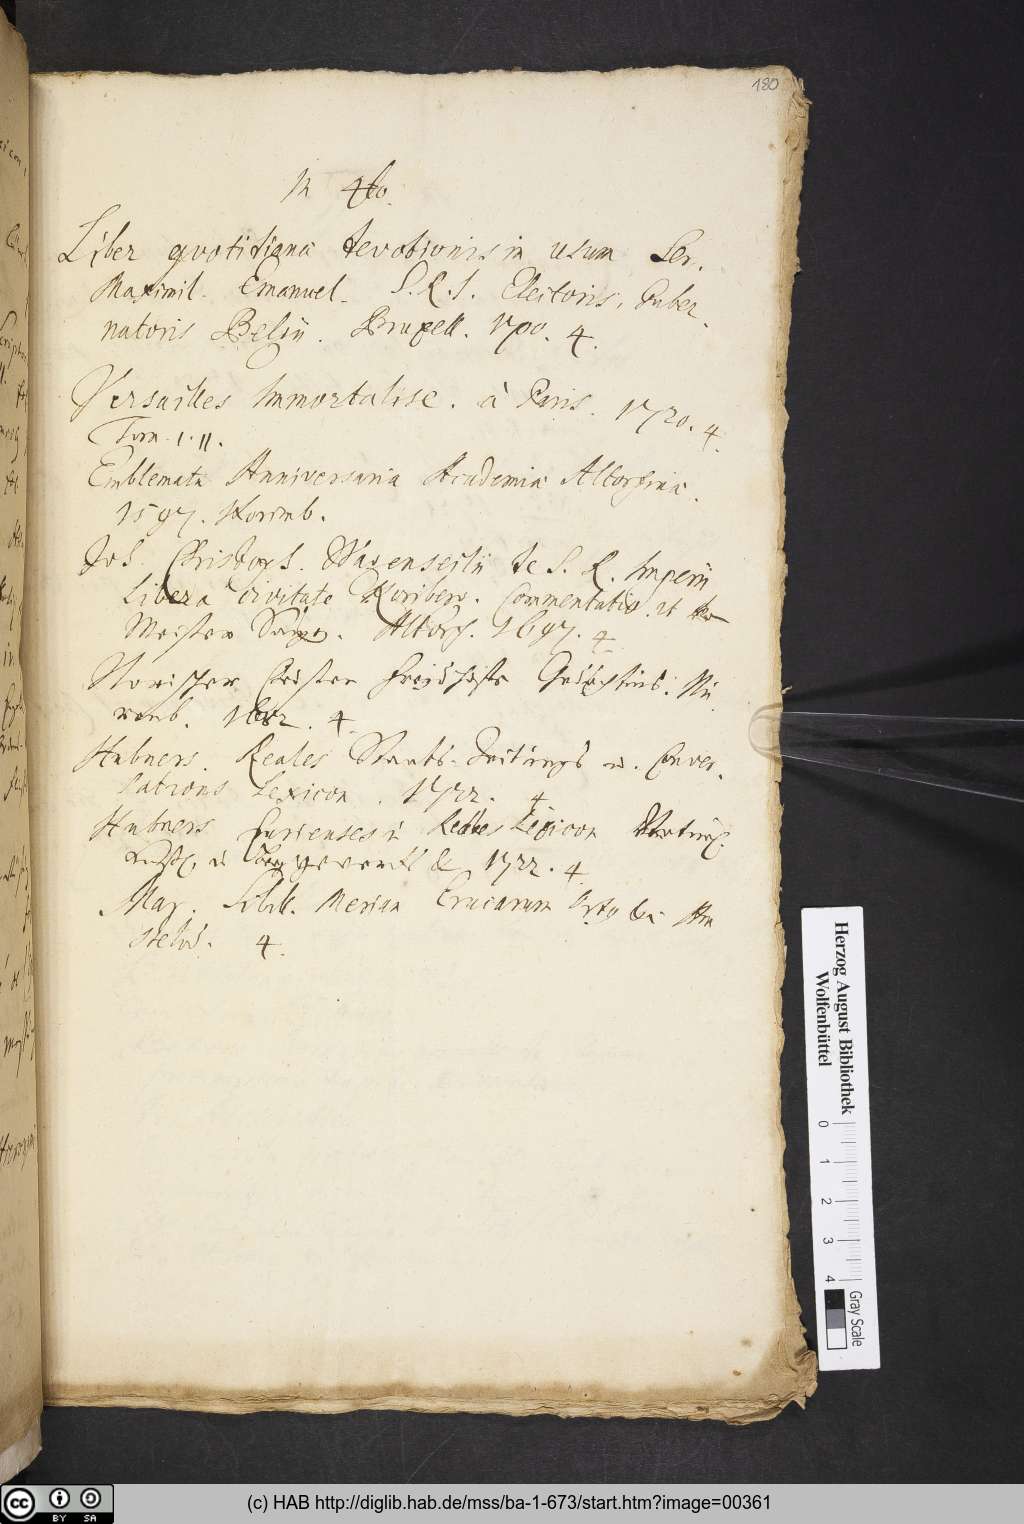 180
In 4to.
Liber quotidianæ devotionis in usum Ser.
Maximil. Emanuel. S.R.I. Electoris, Guber-
natoris Belgii. Bruxell. 1700. 4.
Versailles Immortalisé. à Paris. 1720. 4.
Tom. I. II.
Emblemata Anniversaria Academiæ Altorfinæ.
1597. Norimb.
Joh. Christoph. Wagenseilii de S. R. Imperii
Libera Civitate Noriberg. Commentatio. it
Meister Altorf. 1697. 4.
Norischer Christen Gedächtnis. Nü
renb. 1682. 4.
Hubners. Reales Staats-Zeitungs u. Conver-
sations Lexicon. 1722. 4
Hubners Curieuses u Reales Lexicon
u 1722. 4.
Mar. Sibill. Merian Erucarum Ortus Am
stelod. 4.
Herzog August Bibliothek
Wolfenbüttel
0 1 2 3 4
Gray Scale
(c) HAB http://diglib.hab.de/mss/ba-1-673/start.htm?image=00361
cc BY SA